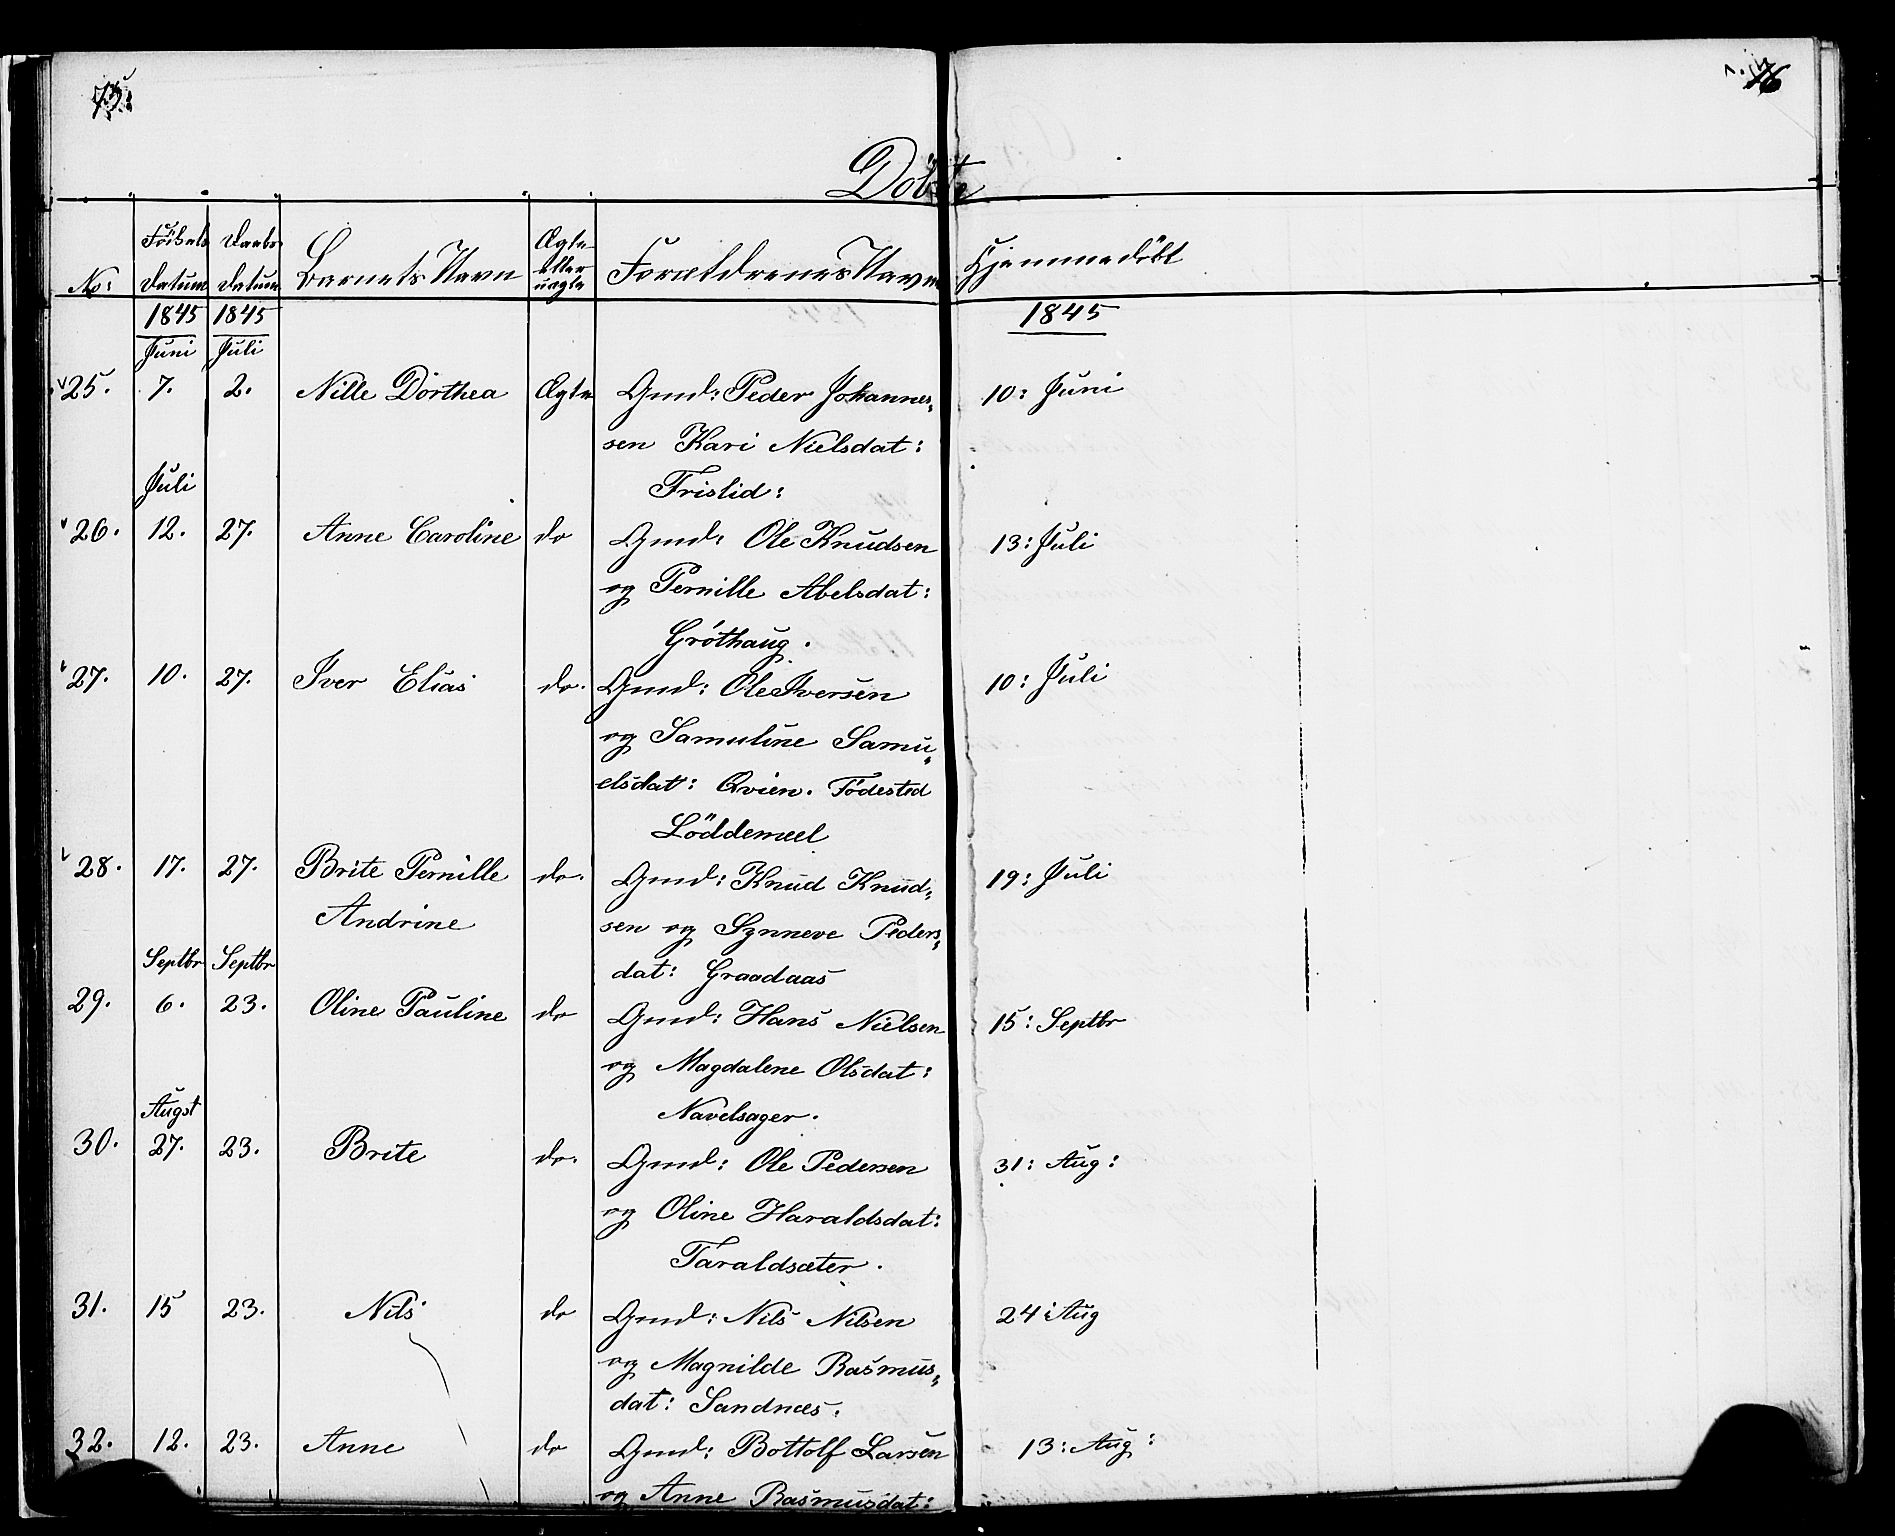 75.
76
Döbte
No:
Födsels Datum
Daabs Datum
Barnets Navn
Ægte eller uægte
Forældrenes Navne
Hjemmedöbt
1845 1845 1845
Juni Juli
25. 7. 2. Nille Dorthea Ægte Gmd: Peder Johannes- 10: Juni
sen Kari Nielsdat:
Juli Frislid:
26. 12. 27. Anne Caroline do Gmd: Ole Knudsen 13: Juli
og Pernille Abelsdat:
Gröthaug.
27. 10. 27. Iver Elias do. Gmd: Ole Iversen 10: Juli
og Samuline Samu-
elsdat: Qvien. Födested
Löddemeel
28. 17. 27. Brite Pernille do. Gmd: Knud Knud- 19: Juli
Andrine sen og Synneve Peders-
Septbr Septbr dat: Graadaas
29. 6. 23. Oline Pauline do Gmd: Hans Nielsen 15: Septbr
og Magdalene Olsdat:
Augst Navelsager.
30. 27. 23. Brite do. Gmd: Ole Pedersen 31: Aug:
og Oline Haraldsdat:
Taraldsæter.
31. 15 23. Nils do Gmd: Nils Nilsen 24: Aug
og Magnilde Rasmus-
dat: Sandnæs.
32. 12. 23. Anne do Gmd: Bottolf Larsen 13: Aug:
og Anne Rasmusdat: